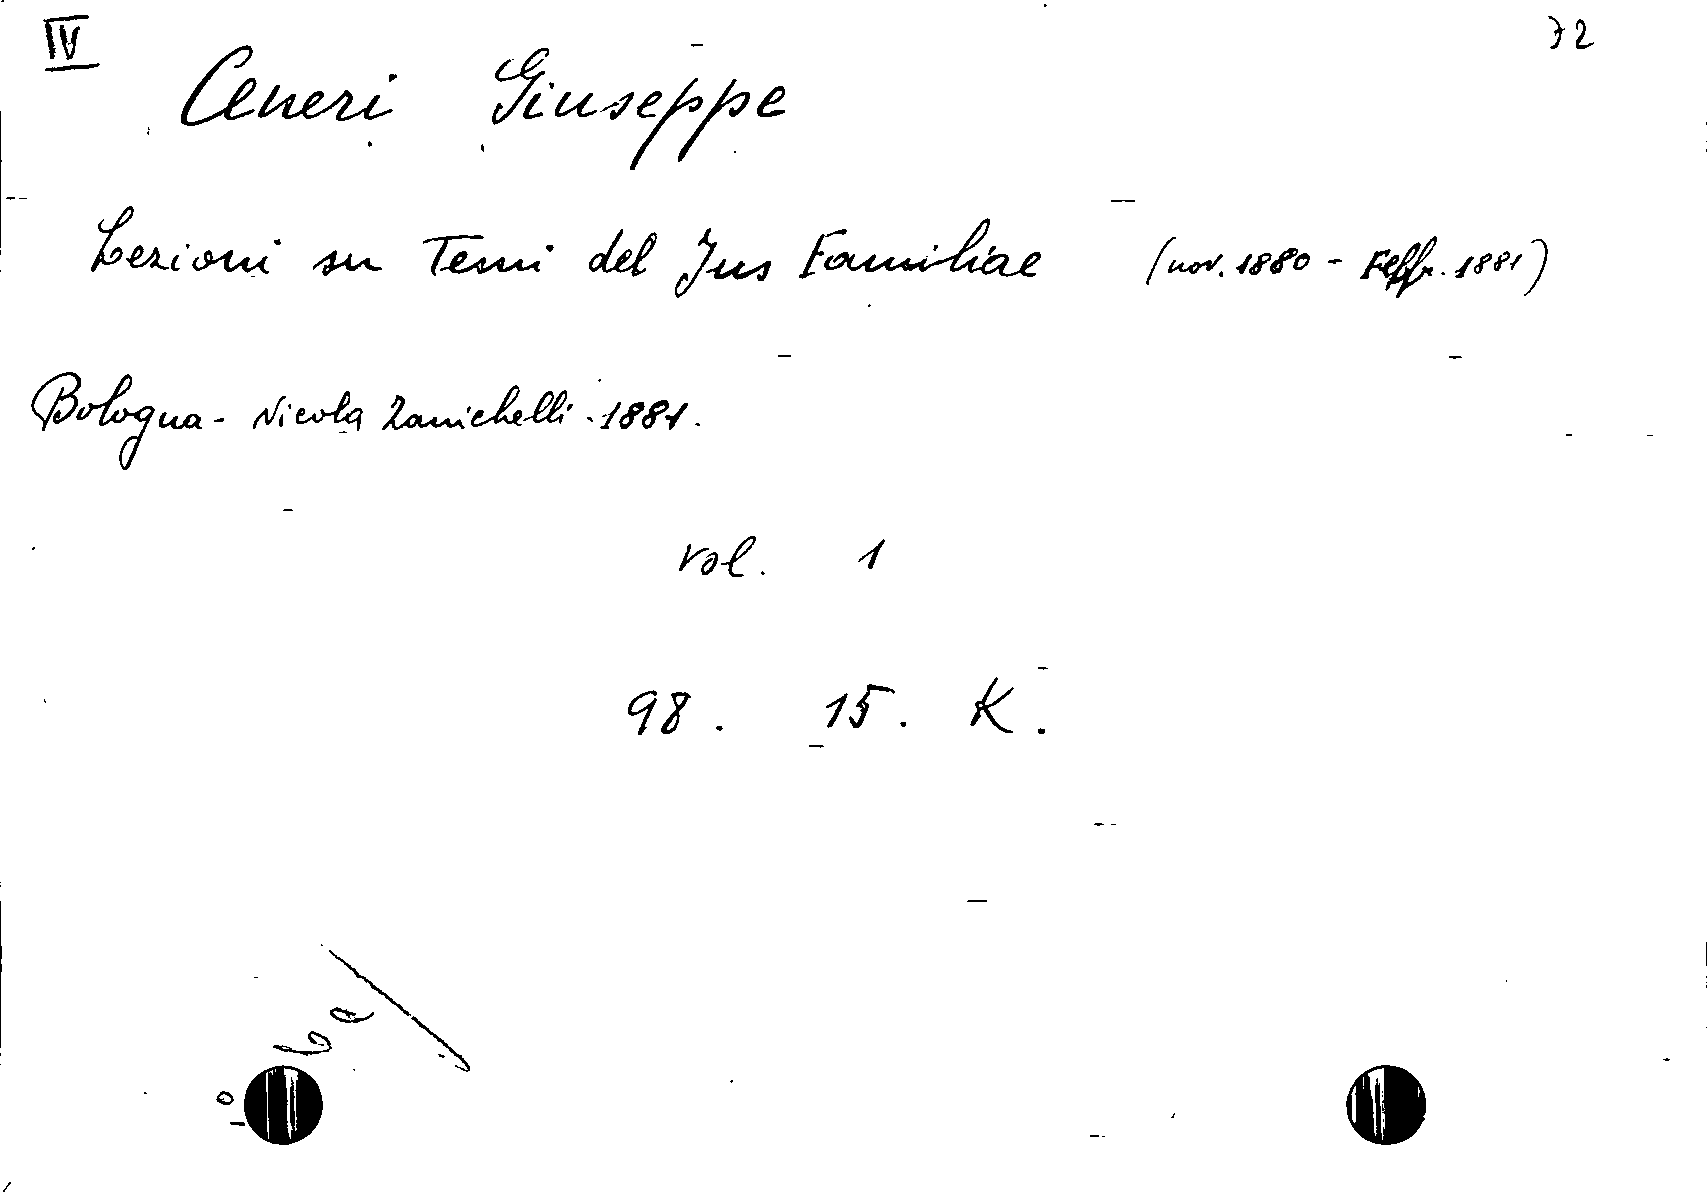 IV 72
Ceneri Giuseppe
Lezioni su Temi del Jus Familiae (nov. 1880 - Febbr. 1881)
Bologna - Nicola Zanichelli - 1881.
vol. 1
98. 15. K.